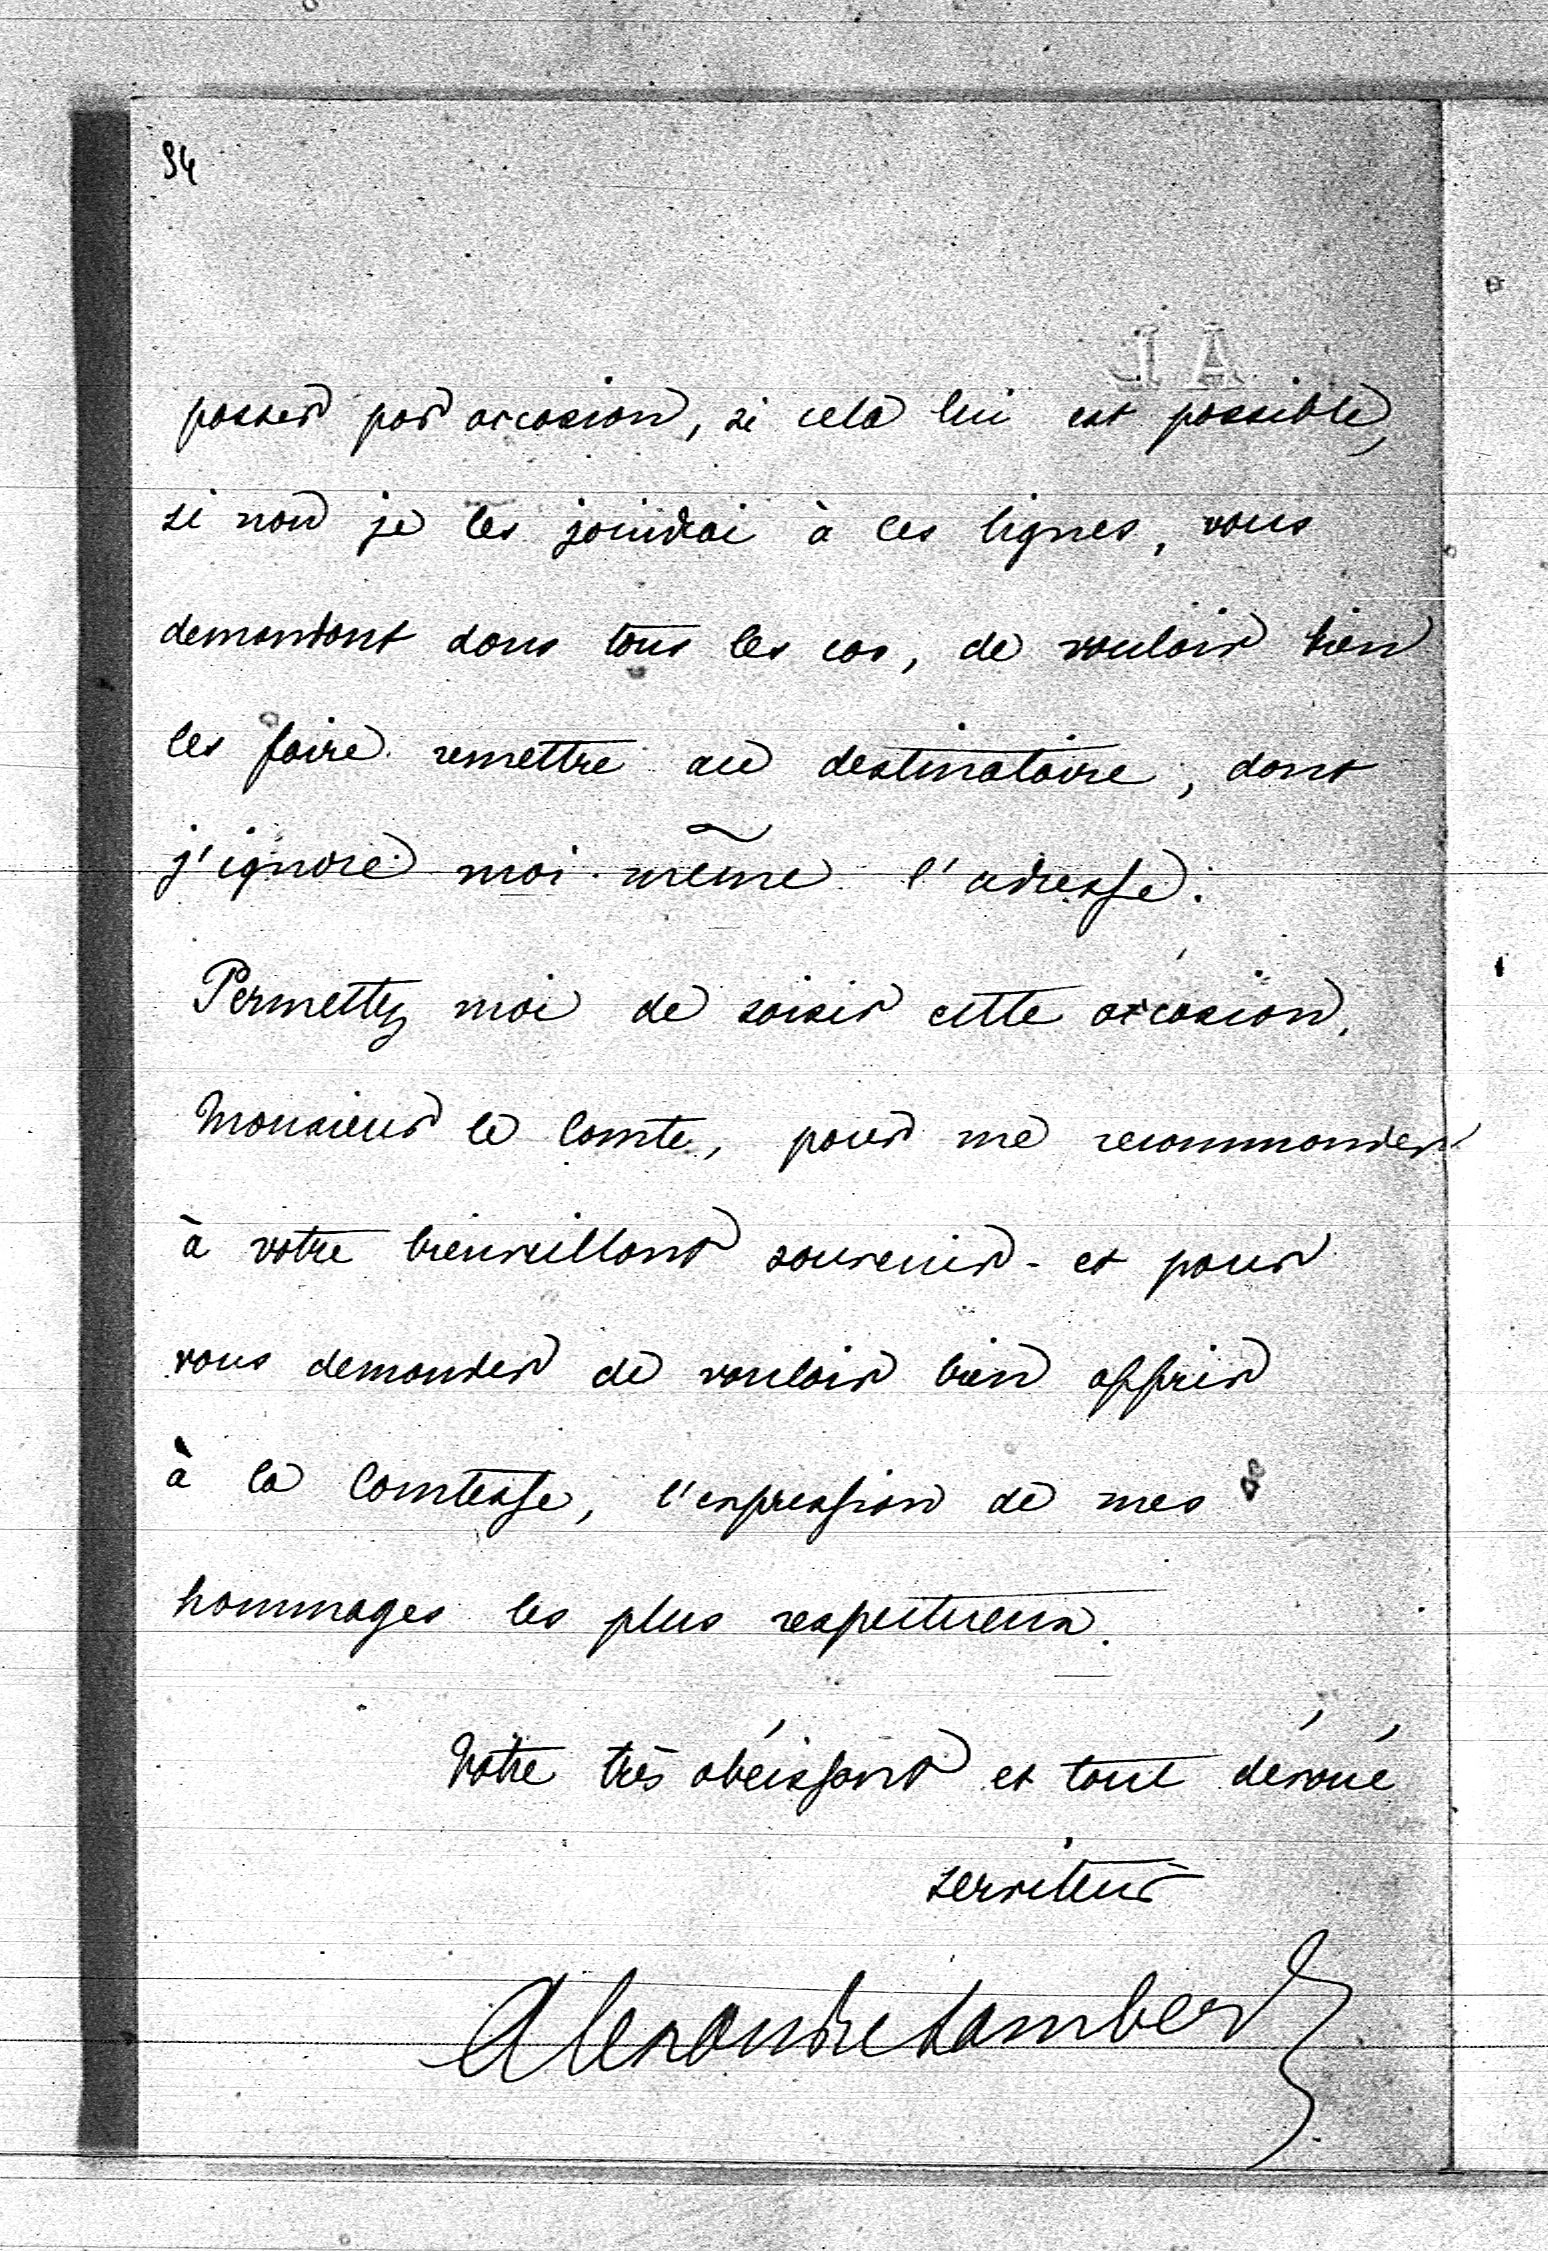 94
passer par occasion, si cela lui est possible,
si non je les joindrai à ces lignes, vous
demandant dans tous les cas, de vouloir bien
les faire remettre au destinataire, dont
j'ignore moi-même l'adresse.
Permettez moi de saisir cette occasion,
Monsieur le Comte, pour me recommander
à votre bienveillant souvenir - et pour
vous demander de vouloir bien offrir
à la Comtesse, l'expression de mes
hommages les plus respectueux.
Votre très obéissant et tout dévoué
serviteur
Alexandre Lambert